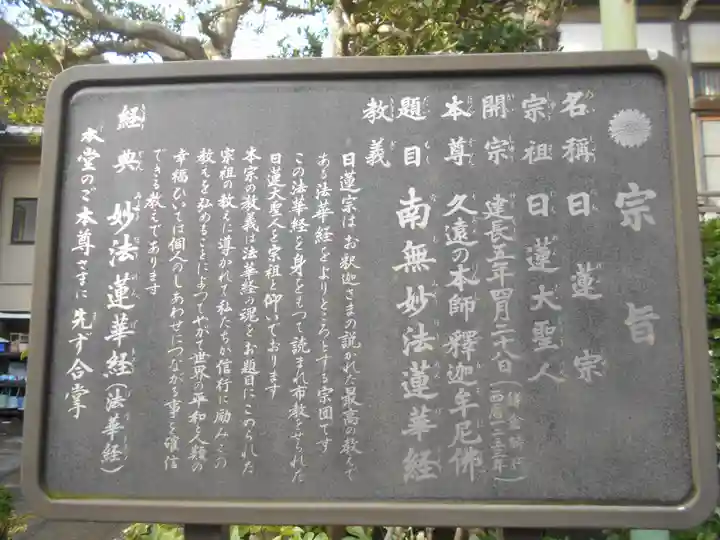 宗旨
名稱 日蓮宗
宗祖 日蓮大聖人
開宗 建長五年四月二十八日(鎌倉時代)(西暦一二五三年)
本尊 久遠の本師釋迦牟尼佛
題目 南無妙法蓮華経
教義
日蓮宗はお釈迦さまの説かれた最高の教えで
ある法華経をよりどころとする宗団です
この法華経を身をもって読まれ布教をせられた
日蓮大聖人を宗祖と仰いでおります
本宗の教義は法華経の魂をお題目にこめられた
宗祖の教えに導かれて私たちが信行に励みこの
教えを弘めることによってやがて世界の平和と人類の
幸福ひいては個人のしあわせにつながる事を確信
できる教えであります
経典 妙法蓮華経(法華経)
本堂のご本尊さまに先ず合掌